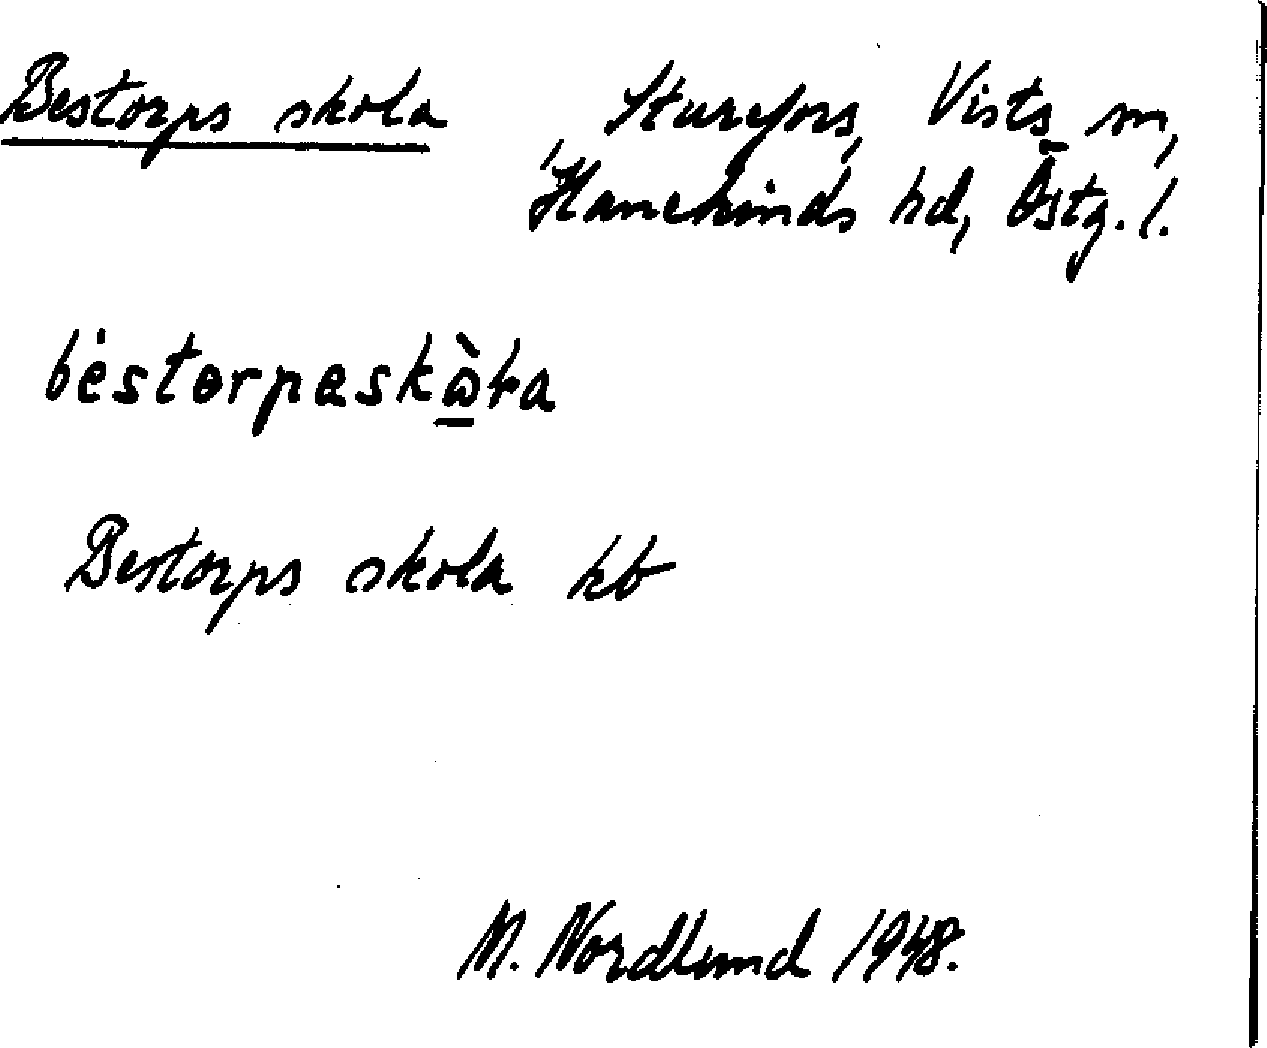 Bestorps skola Sturefors, Vists sn,
Hanekinds hd, Östg. l.
bèstorpaskὼla
Bestorps skola kb
M. Nordlund 1948.